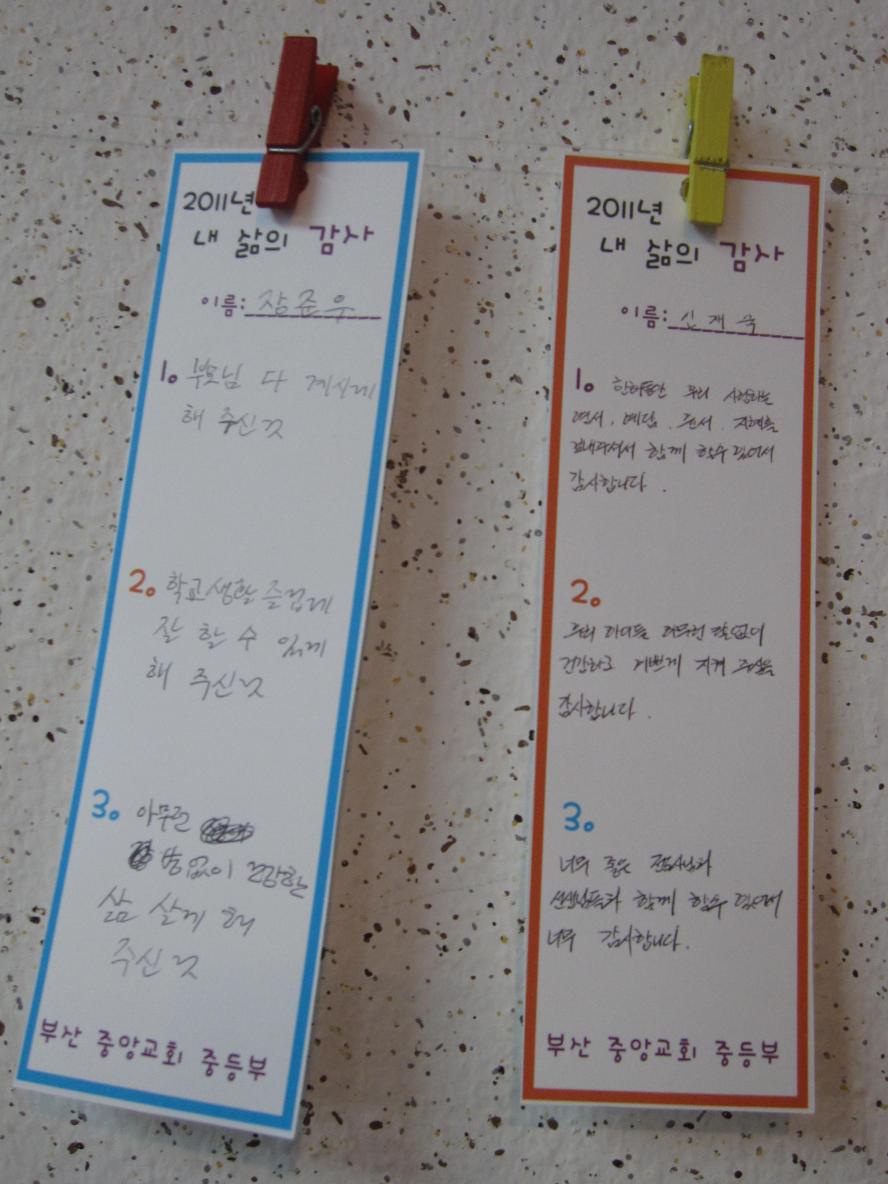 2011년
내 삶의 감사
이름: 장준우
1. 부모님 다 계시게
해 주신것
2. 학교생활 즐겁게
잘 할 수 있게
해 주신것
3. 아무런
병없이 건강한
삶 살게 해
주신 것
부산 중앙교회 중등부
2011년
내 삶의 감사
이름: 신재욱
1. 한해동안 우리 사랑하는
연서, 예담, 은서, 지혜를
보내주셔서 함께 할수 있어서
감사합니다.
2.
우리 아이들 아무런 탈없이
건강하고 예쁘게 지켜 주심을
감사합니다.
3.
너무 좋은 전도사님과
선생님들과 함께 할수 있어서
너무 감사합니다.
부산 중앙교회 중등부